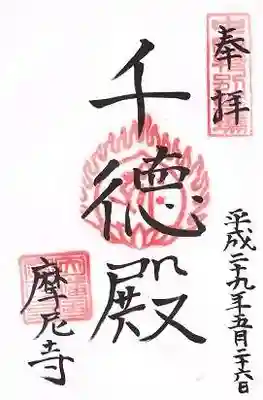 奉拝
平成二十九年五月二十六日
千徳殿
摩尼寺